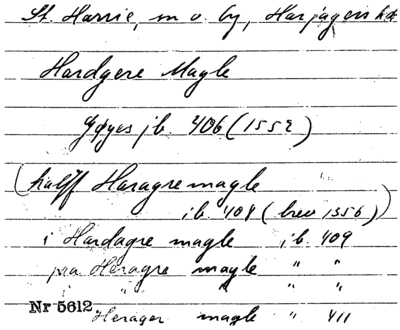 St. Harrie, sn o. by, Harjagers hd
Hardgere Magle
Gøyes jb. 406 (1552)
(halff Haragre magle
ib. 408 (brev 1556)
i Hardagre magle ib. 409
paa Heragre magle " "
" " " "
Nr 5612 Herager magle " 411